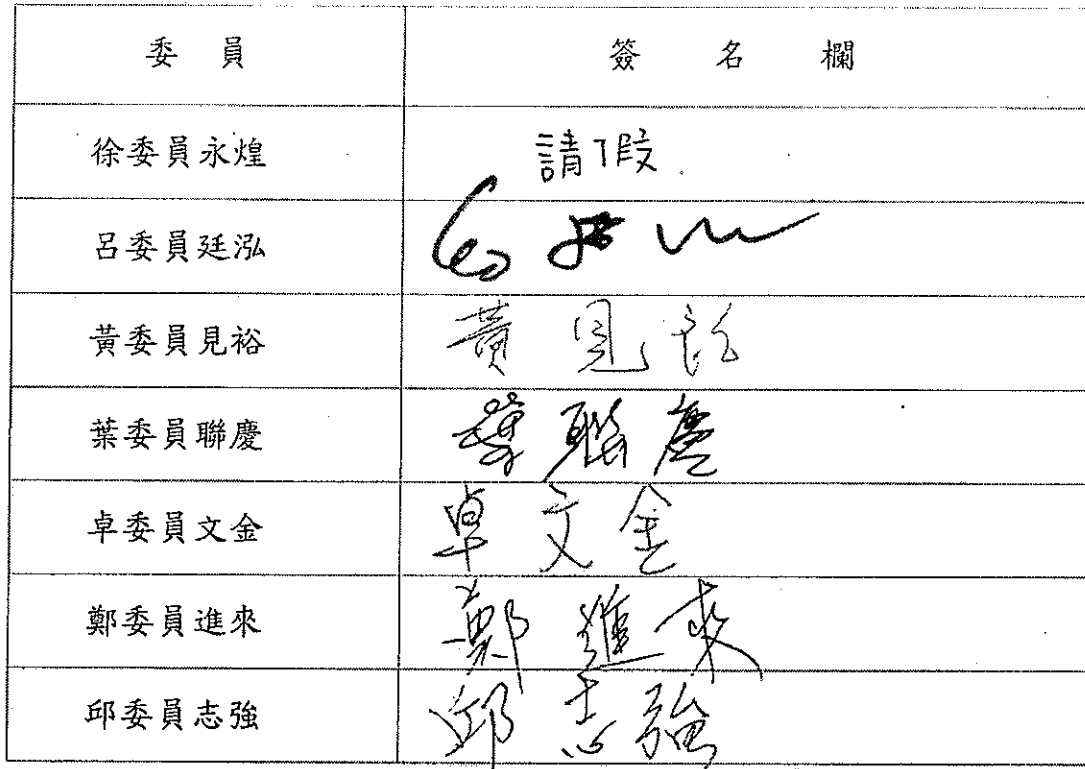 委員 簽名欄
徐委員永煌 請假
呂委員廷泓
黃委員見裕 黃見裕
葉委員聯慶 葉聯慶
卓委員文金 卓文金
鄭委員進來 鄭進來
邱委員志強 邱志強